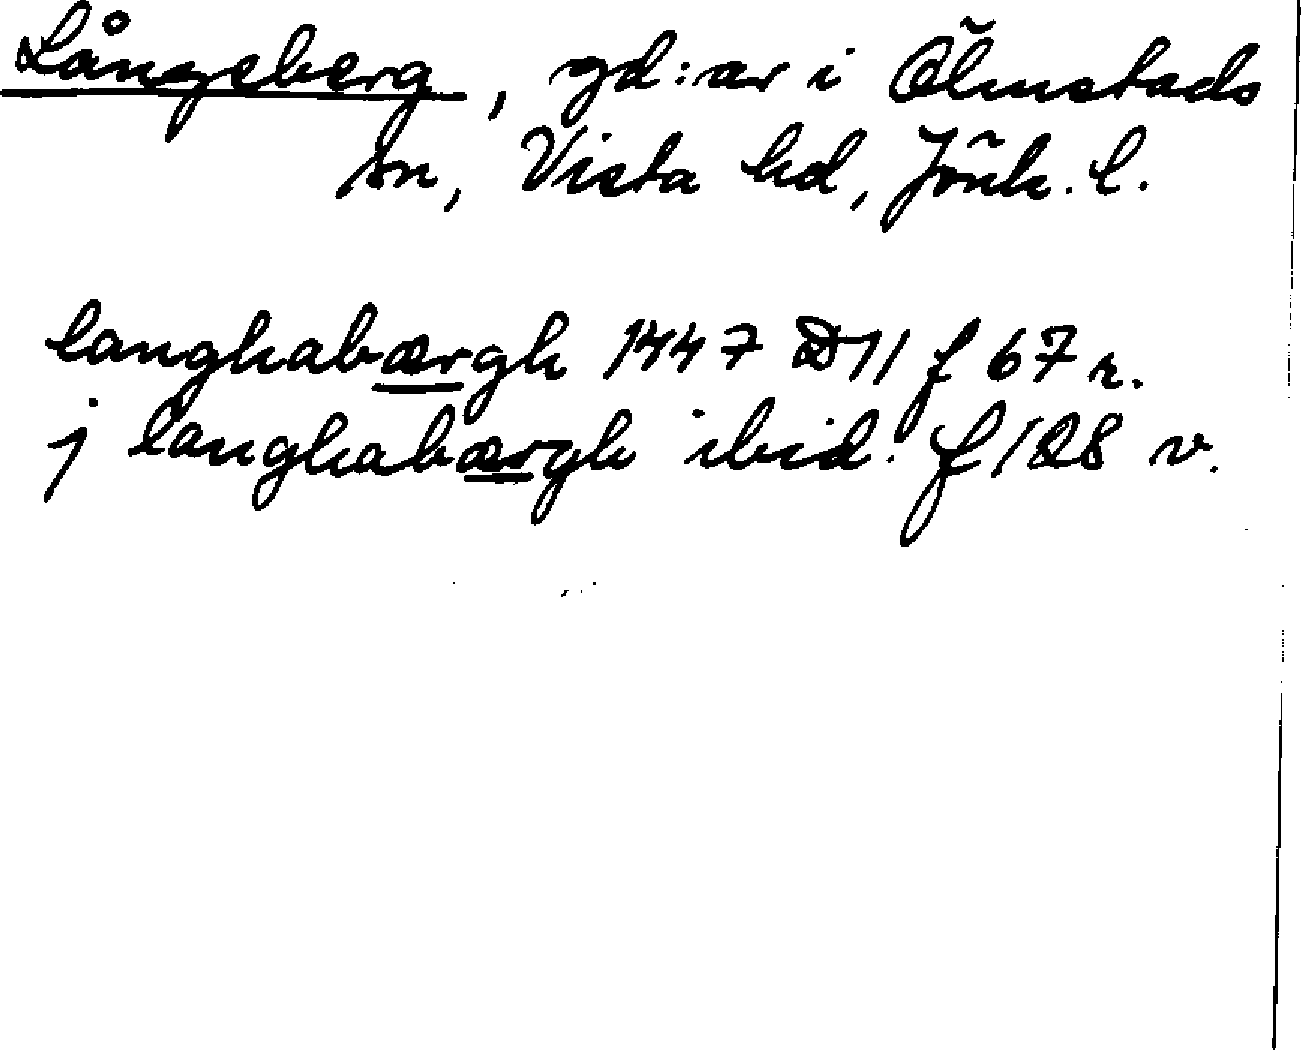 Långeberg, gd:ar i Ölmstads
sn, Vista hd, Jönk. l.
langhabærgh 1447 D 11 f 67 r.
j langhabærgh ibid. f 128 v.